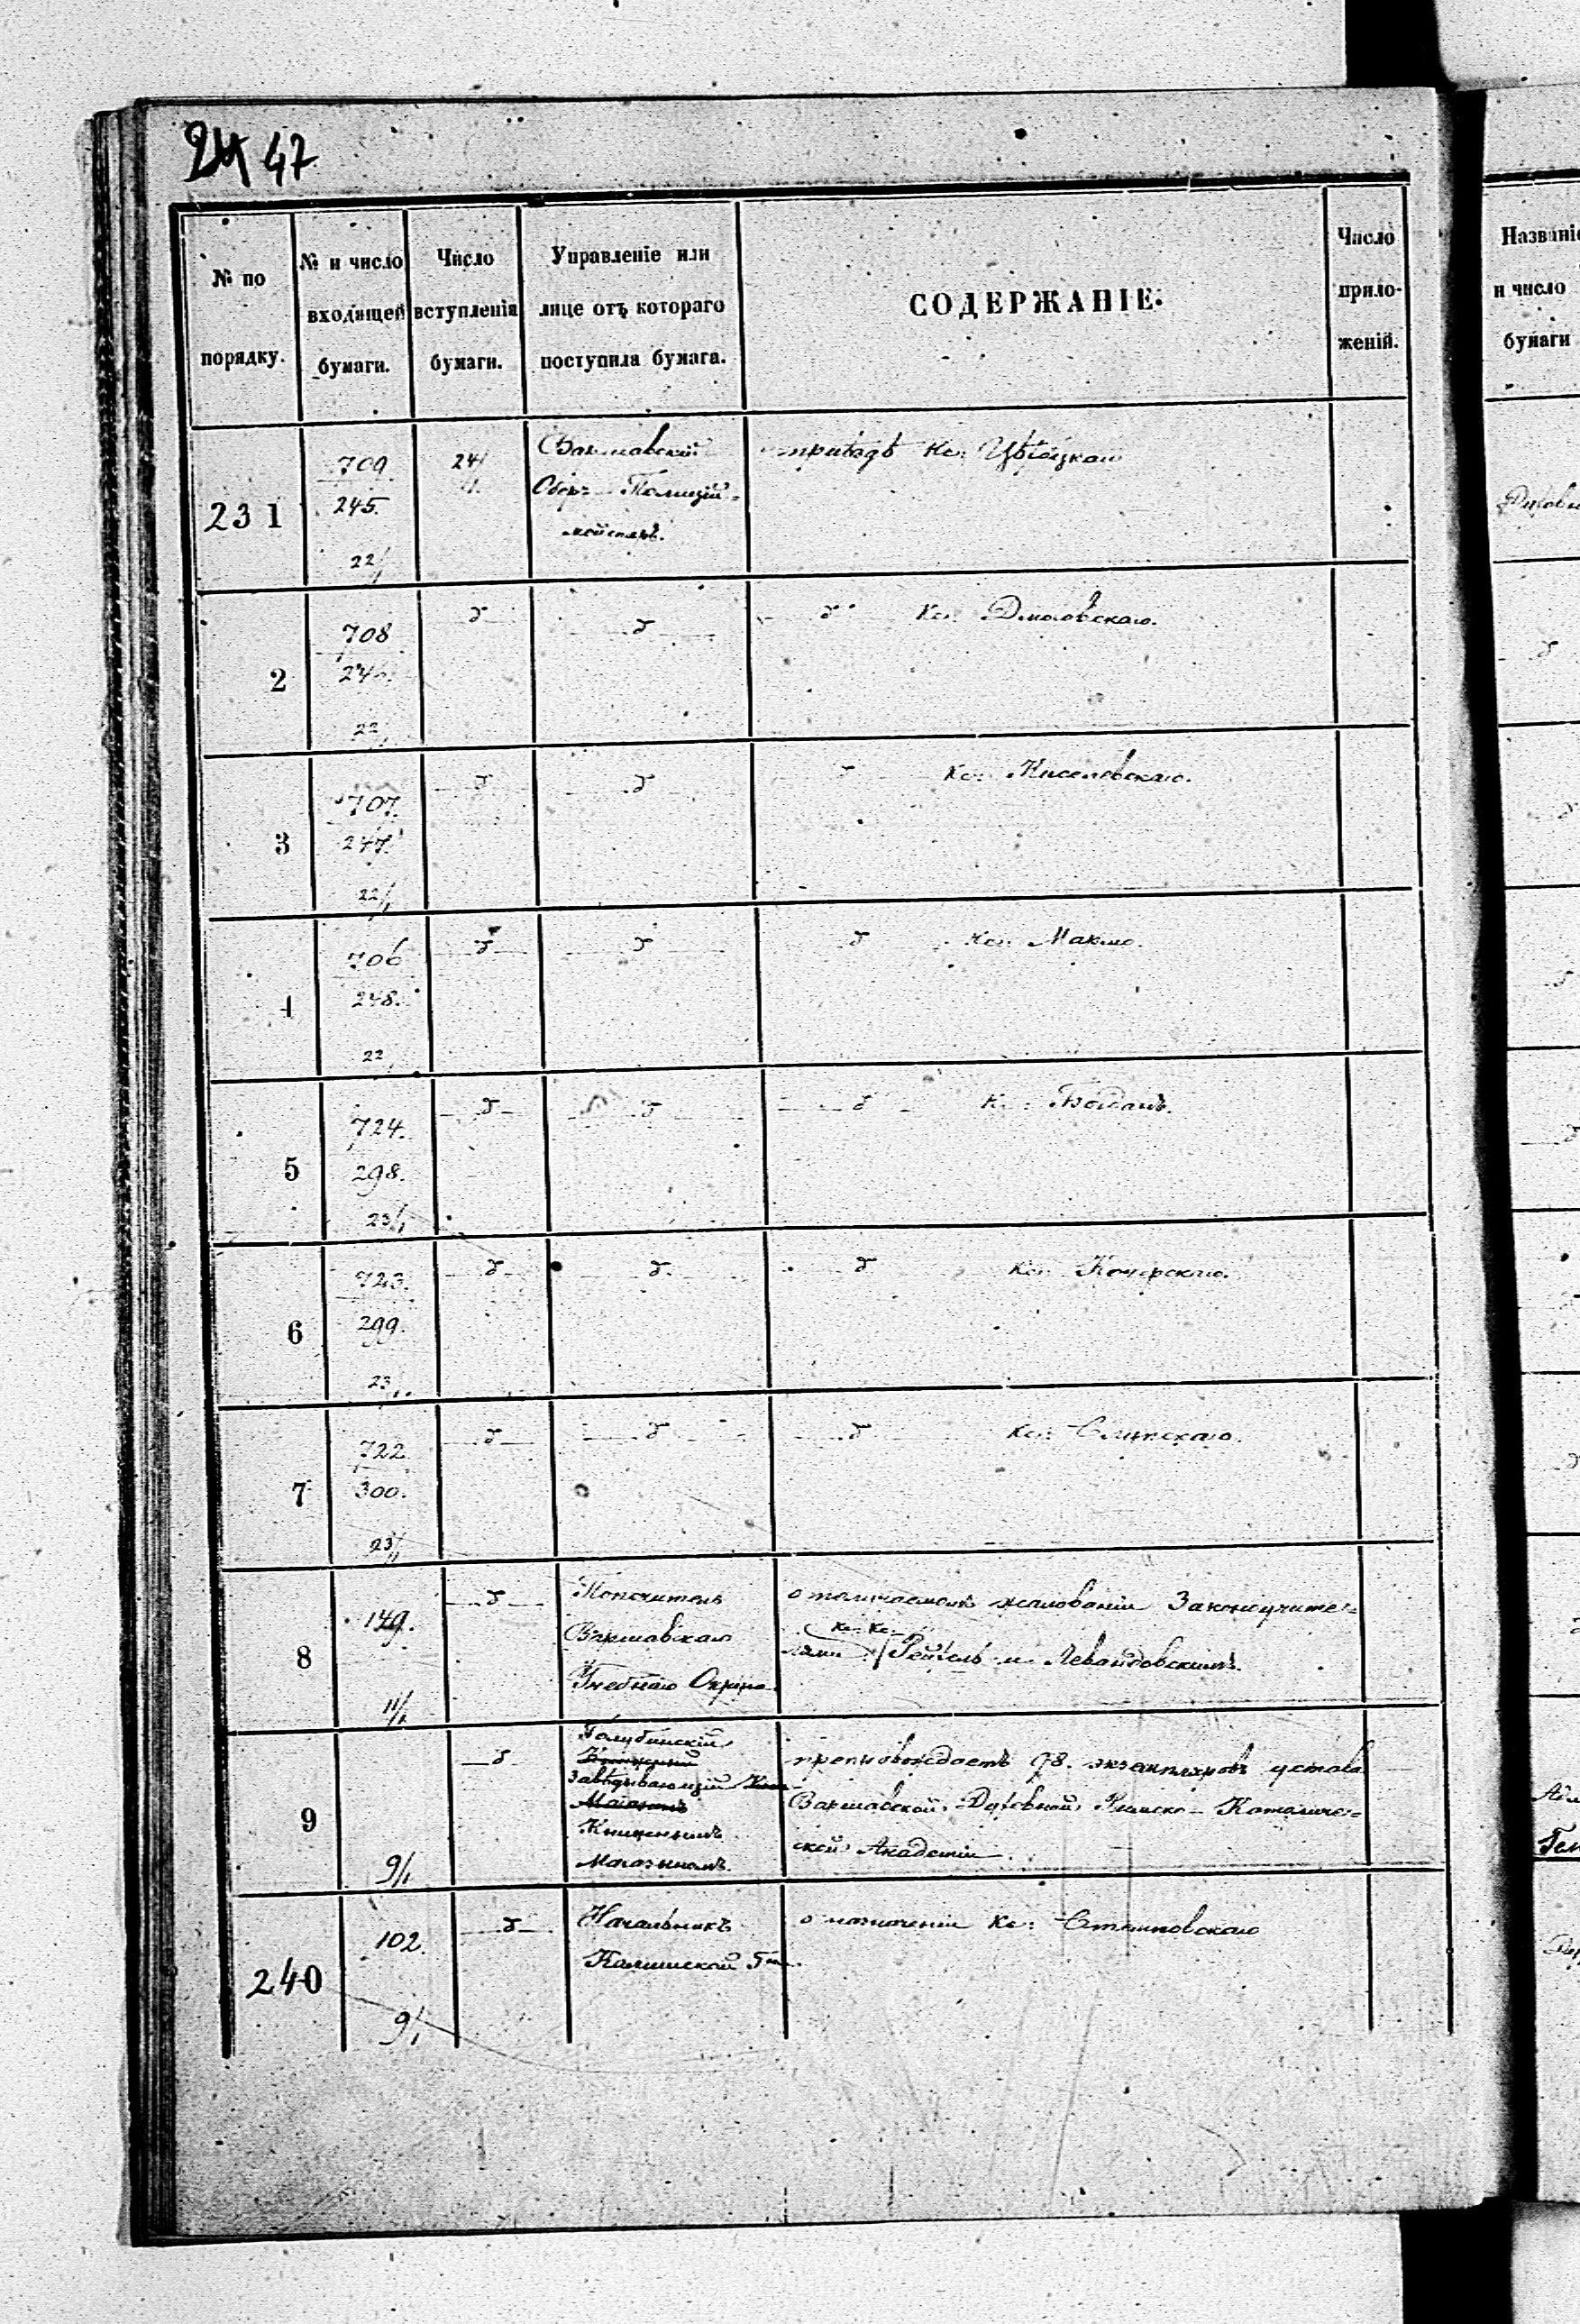 24 47
№ по порядку.
№ и число входящей бумаги.
Число вступленія бумаги.
Управленіе или лице отъ котораго поступила бумага.
СОДЕРЖАНІЕ.
Число прило-женій.
231
709.
245.
22/1
24/1.
Варшавскій
Оберъ-Полицій-
мейстеръ.
пріѣздѣ Кс:
2
708
246.
22/1
δ
δ
δ Кс: Дмоховскаго.
3
707.
247.
22/1
δ
δ
δ Кс: Киселевскаго.
4
706
248.
22
δ
δ
δ Кс:
5
724.
298.
23/1
δ
δ
δ К:
6
723.
299.
23
δ
δ
δ Кс:
7
722
300.
23/1
δ
δ
δ Кс:
8
149.
11/1
δ
Попечитель
Варшавскаго
Учебнаго Округа
о получаемомъ жалованіи Законоучите-
кс. кс.
лями и Левандовскимъ.
9
9/1
δ
Голубинскій
Завѣдывающій
Магазинъ
Книжнымъ
Магазиномъ.
препровождаетъ 98. экземпляровъ устава
Варшавской Духовной Римско-Католиче-
ской Академіи
240
102.
9/1
δ
Начальникъ
Калишской Губ.
о назначеніи Кс:
Названіе
и число
бумаги